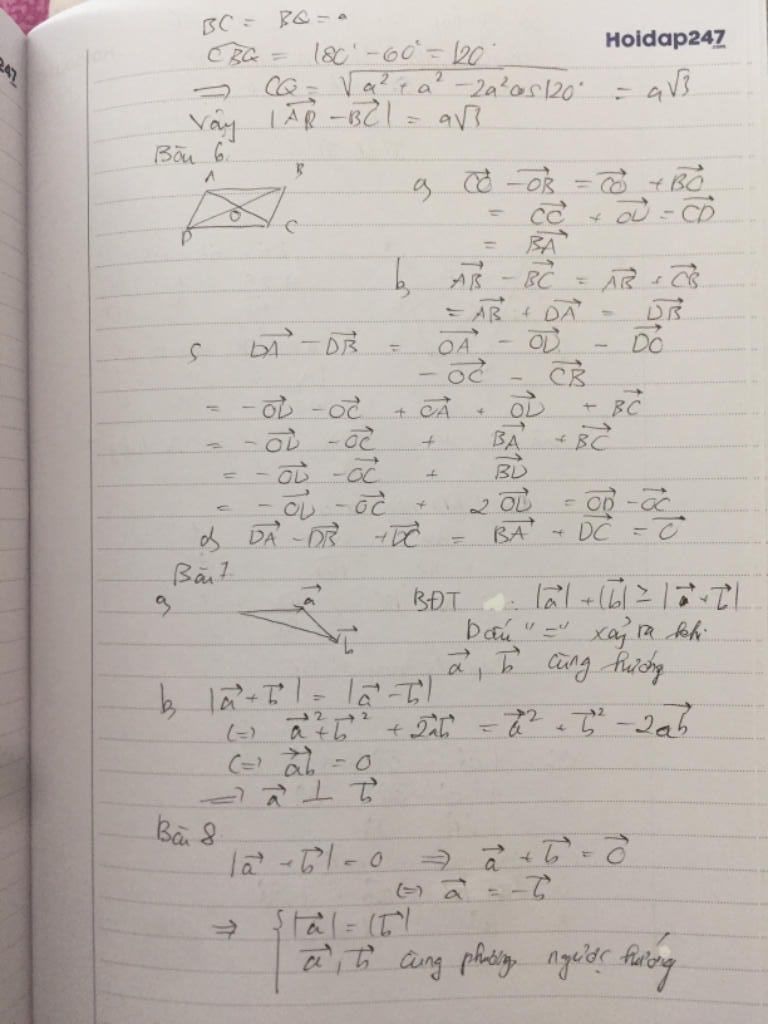 BC = BQ = a
Hoidap247
CBQ = 180° - 60° = 120°
⟹ CQ = √a² + a² - 2a²cos120° = a√3
Vậy |AB - BC| = a√3
Bài 6
A B
a, CO - OB = CO + BO
O
D C
= CO + OD = CD
= BA
b, AB - BC = AB + CB
= AB + DA = DB
c DA - DB = OA - OD - DO
- OC - CB
= -OD - OC + OA + OD + BC
= -OD - OC + BA + BC
= -OD - OC + BD
= -OD - OC + 2OD = OD - OC
d, DA - DB + DC = BA + DC = O
Bài 7
a, a b BĐT : |a| + |b| ≥ |a + b|
Dấu "=" xảy ra khi
a, b cùng hướng
b, |a + b| = |a - b|
(=) a² + b² + 2ab = a² + b² - 2ab
(=) ab = 0
⟹ a ⊥ b
Bài 8
|a + b| = 0 ⟹ a + b = 0
(=) a = -b
⟹ { |a| = |b|
a, b cùng phương ngược hướng